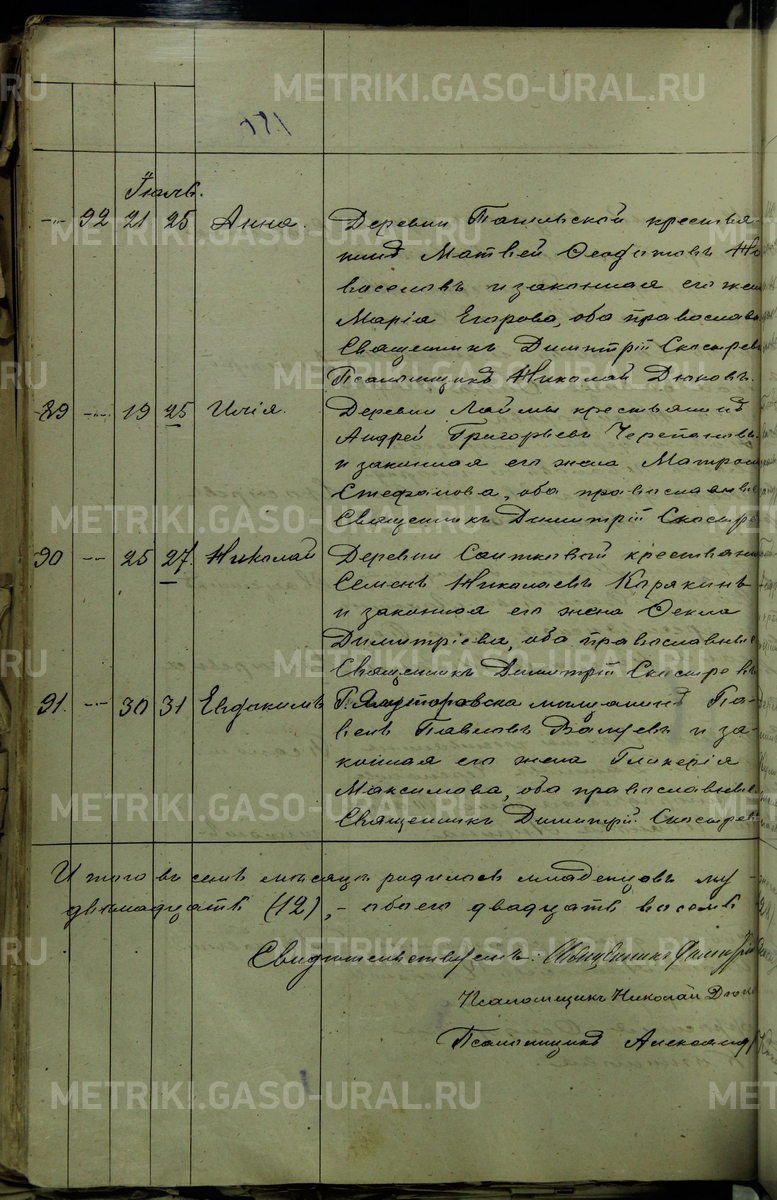 Іюль.
92 21 25 Анна. Деревни крестья-
нинъ Матвей Ѳеофановъ Но
воселовъ и законная его жен
Марія Егорова, оба православн
Священникъ Димитрій
Псаломщикъ Николай Дюковъ.
89 19 25 Илія. Деревни Лаймы крестьянинъ
Андрей Григорьевъ Черепановъ
и законная его жена Матрон
Стефанова, оба православные
Священникъ Димитрій
90 25 27 Николай Деревни крестьянин
Семенъ Николаевъ Карякинъ
и законная его жена Ѳекла
Димитріева, оба православные
Священникъ Димитрій
91. 30 31 Евдокимъ Г. Ялуторовска мѣщанинъ Па-
велъ Павловъ и за-
конная его жена Гликерія
Максимова, оба православные
Священникъ Димитрій
Итого въ семъ мѣсяцѣ родилось младенцовъ му
двѣнадцать (12), – обоего двадцать восемь
Свидѣтельствуемъ: Священникъ Димитрій
Псаломщикъ Николай Дюко
Псаломщикъ Александ
METRIKI.GASO-URAL.RU